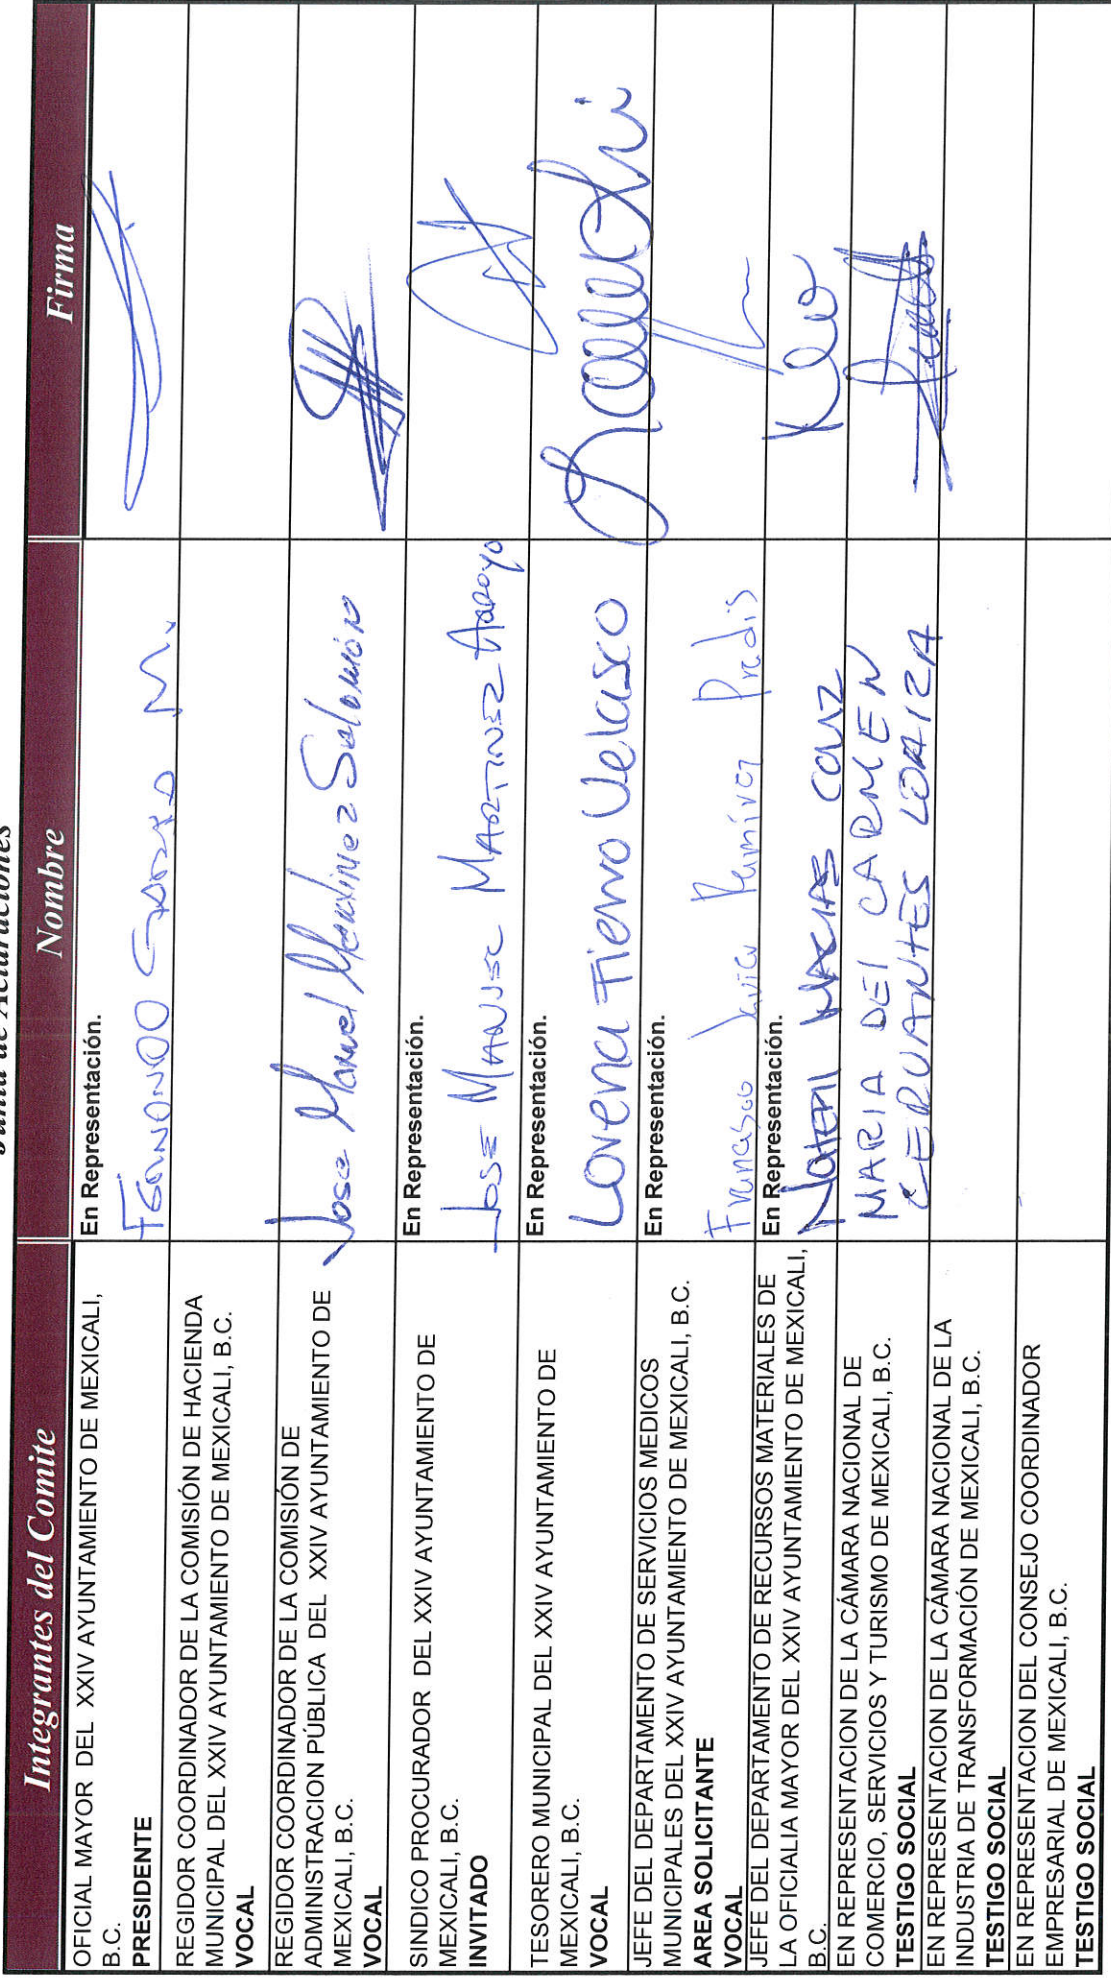 Junta de Aclaraciones
Integrantes del Comite
Nombre
Firma
OFICIAL MAYOR DEL XXIV AYUNTAMIENTO DE MEXICALI,
B.C.
PRESIDENTE
En Representación.
FERNANDO M.
REGIDOR COORDINADOR DE LA COMISIÓN DE HACIENDA
MUNICIPAL DEL XXIV AYUNTAMIENTO DE MEXICALI, B.C.
VOCAL
REGIDOR COORDINADOR DE LA COMISIÓN DE
ADMINISTRACION PÚBLICA DEL XXIV AYUNTAMIENTO DE
MEXICALI, B.C.
VOCAL
Jose Manuel Martinez Salomón
SINDICO PROCURADOR DEL XXIV AYUNTAMIENTO DE
MEXICALI, B.C.
INVITADO
En Representación.
JOSE MANUEL MARTINEZ ARROYO
TESORERO MUNICIPAL DEL XXIV AYUNTAMIENTO DE
MEXICALI, B.C.
VOCAL
En Representación.
Lorena Fierro Velasco
JEFE DEL DEPARTAMENTO DE SERVICIOS MEDICOS
MUNICIPALES DEL XXIV AYUNTAMIENTO DE MEXICALI, B.C.
AREA SOLICITANTE
VOCAL
En Representación.
Francisco Javier Ramirez Pradis
JEFE DEL DEPARTAMENTO DE RECURSOS MATERIALES DE
LA OFICIALIA MAYOR DEL XXIV AYUNTAMIENTO DE MEXICALI,
B.C.
En Representación.
MACIAS
EN REPRESENTACION DE LA CÁMARA NACIONAL DE
COMERCIO, SERVICIOS Y TURISMO DE MEXICALI, B.C.
TESTIGO SOCIAL
MARIA DEL CARMEN
CERVANTES LOAIZA
EN REPRESENTACION DE LA CÁMARA NACIONAL DE LA
INDUSTRIA DE TRANSFORMACIÓN DE MEXICALI, B.C.
TESTIGO SOCIAL
EN REPRESENTACION DEL CONSEJO COORDINADOR
EMPRESARIAL DE MEXICALI, B.C.
TESTIGO SOCIAL